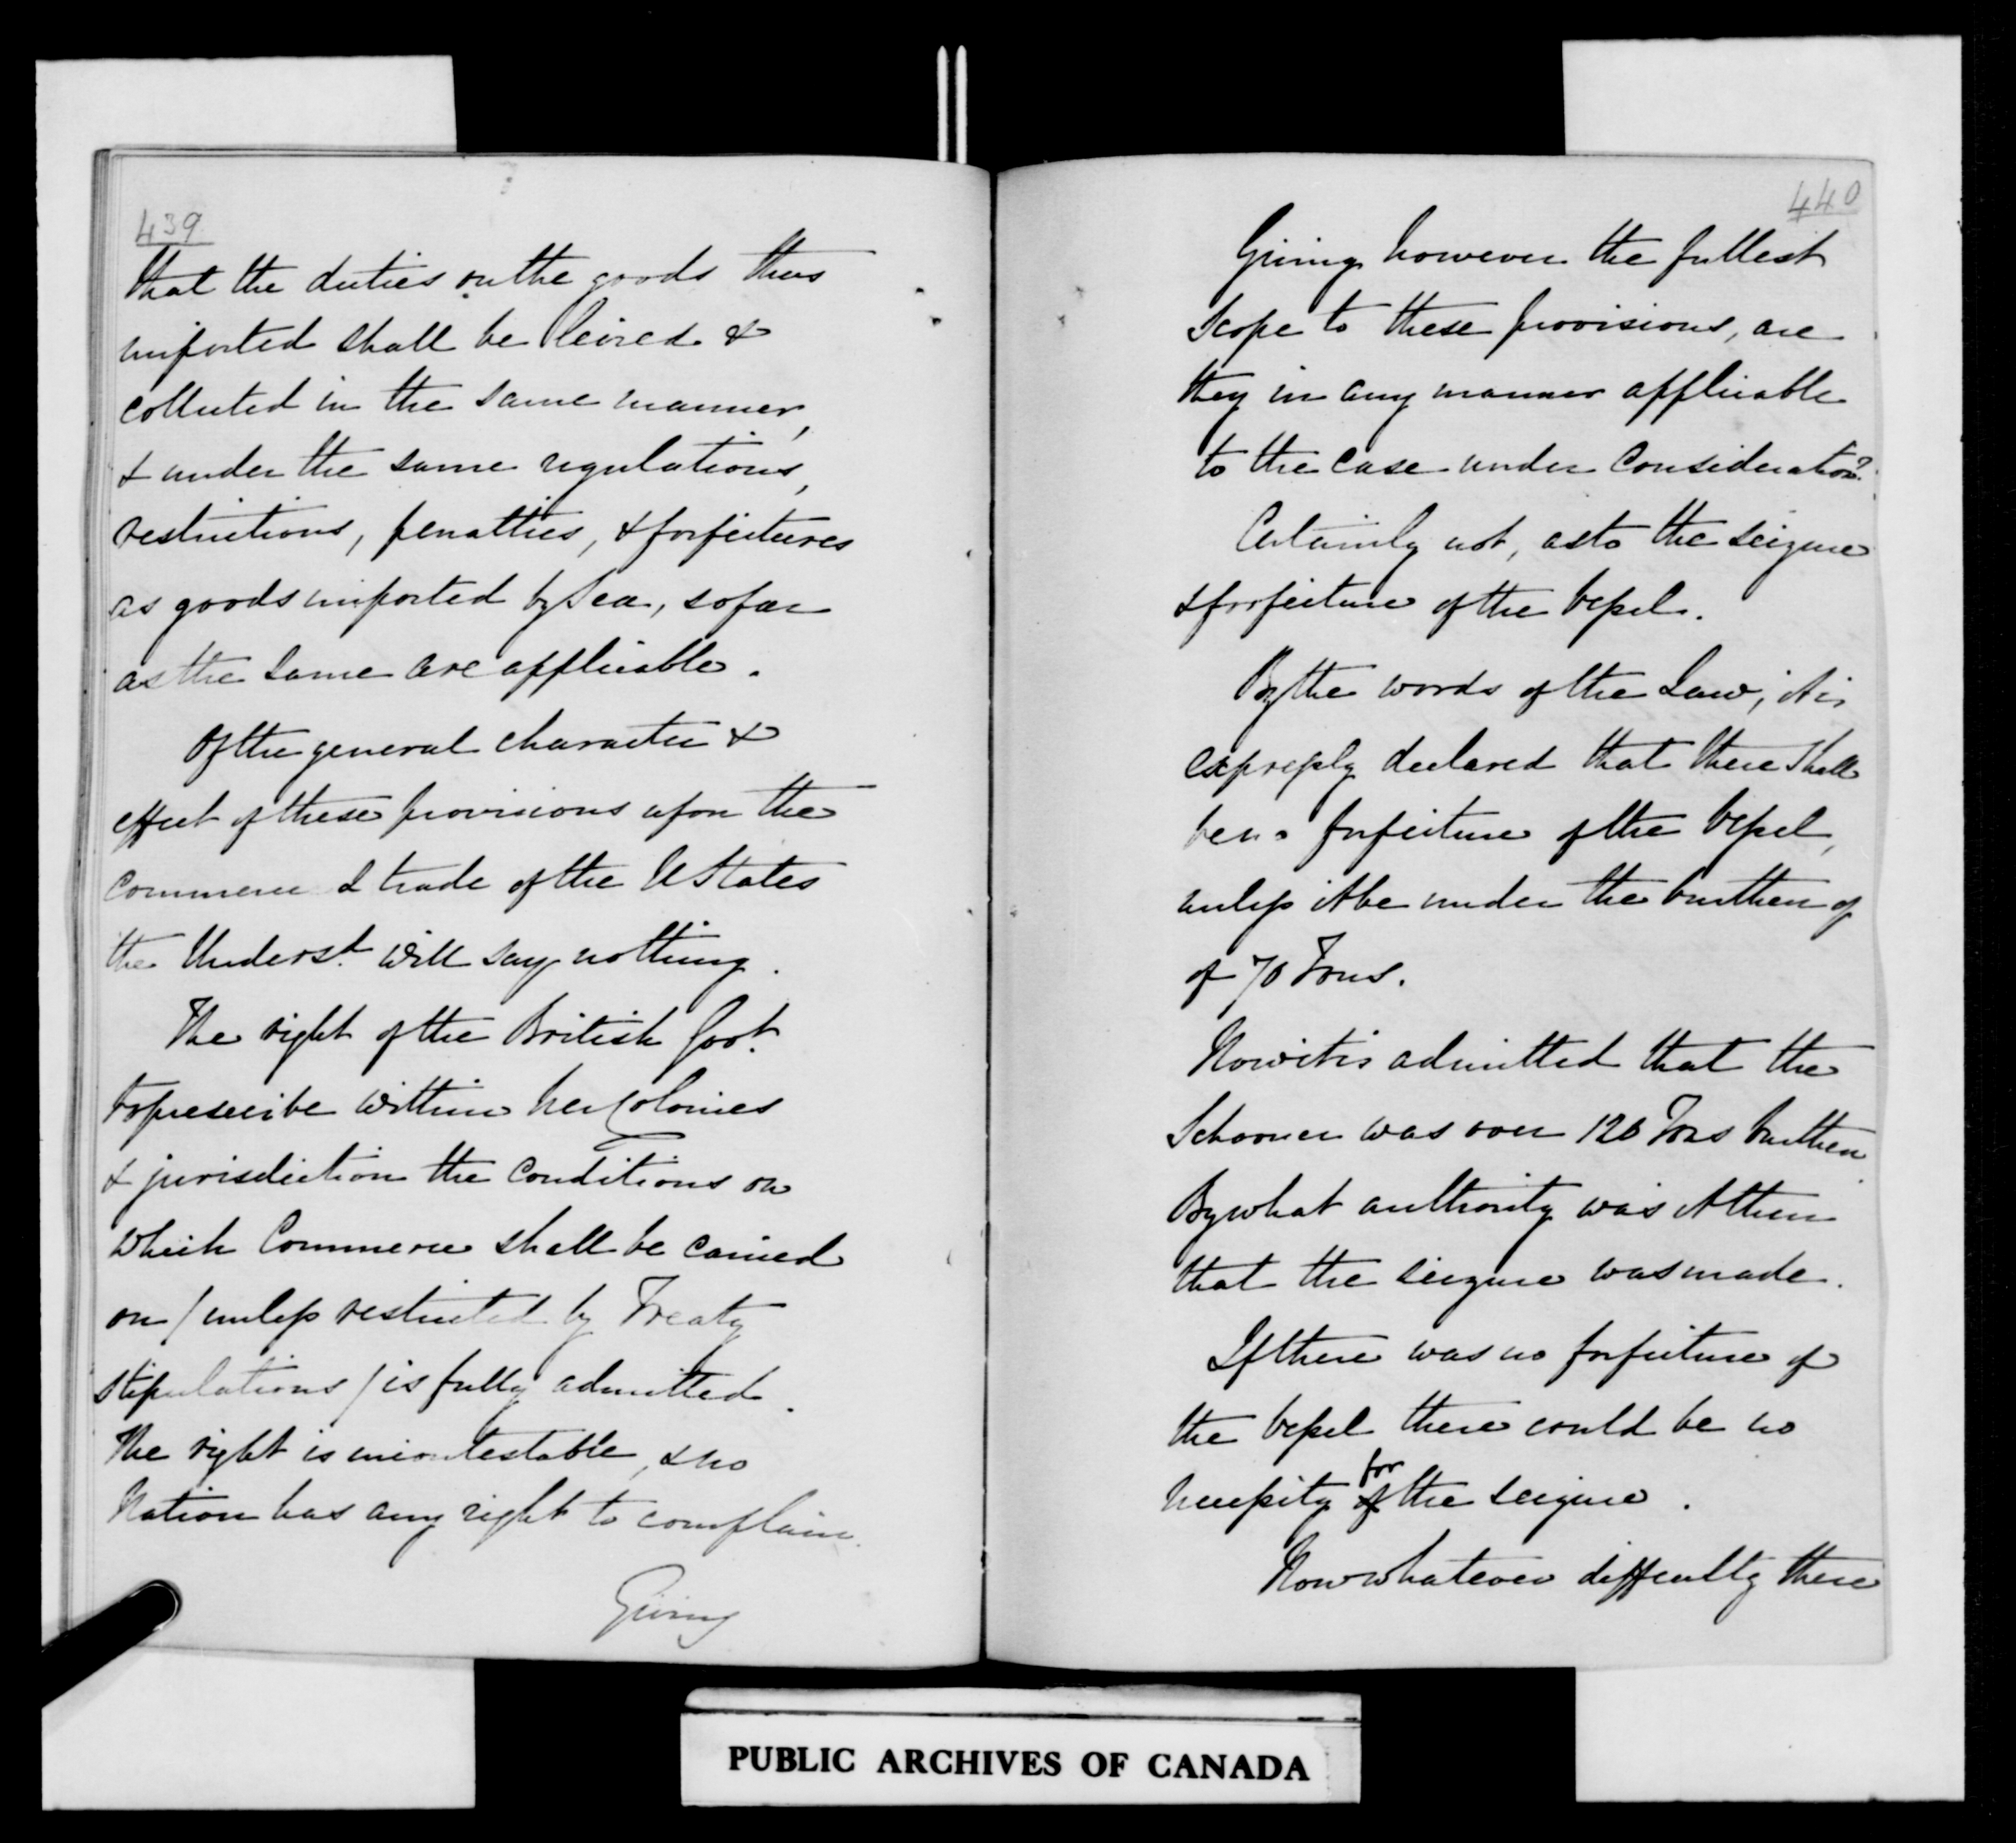 439
that the duties on the goods thus
imported shall be levied &
collected in the same manner,
& under the same regulations,
restrictions, penalties, & forfeitures
as goods imported by Sea, so far
as the same are applicable.
Of the general character &
effect of these provisions upon the
commerce & trade of the U States
the Unders.d will say nothing.
The right of the British Gov.t
to prescribe within her Colonies
& jurisdiction the conditions on
which Commerce shall be carried
on / unless restricted by Treaty
stipulations / is fully admitted.
The right is incontestable, & no
Nation has any right to complain.
Giving
440
Giving however the fullest
Scope to these provisions, are
they in any manner applicable
to the case under consideration?
Certainly not, as to the seizure
& forfeiture of the vessel.
By the words of the Law, it is
expressly declared that there shall
be no forfeiture of the vessel,
unless it be under the burthen of
of 70 Tons.
Now it is admitted that the
Schooner was over 120 Tons burthen
By what authority was it then
that the seizure was made.
If there was no forfeiture of
the vessel there could be no
necessity for the seizure.
Now whatever difficulty there
PUBLIC ARCHIVES OF CANADA